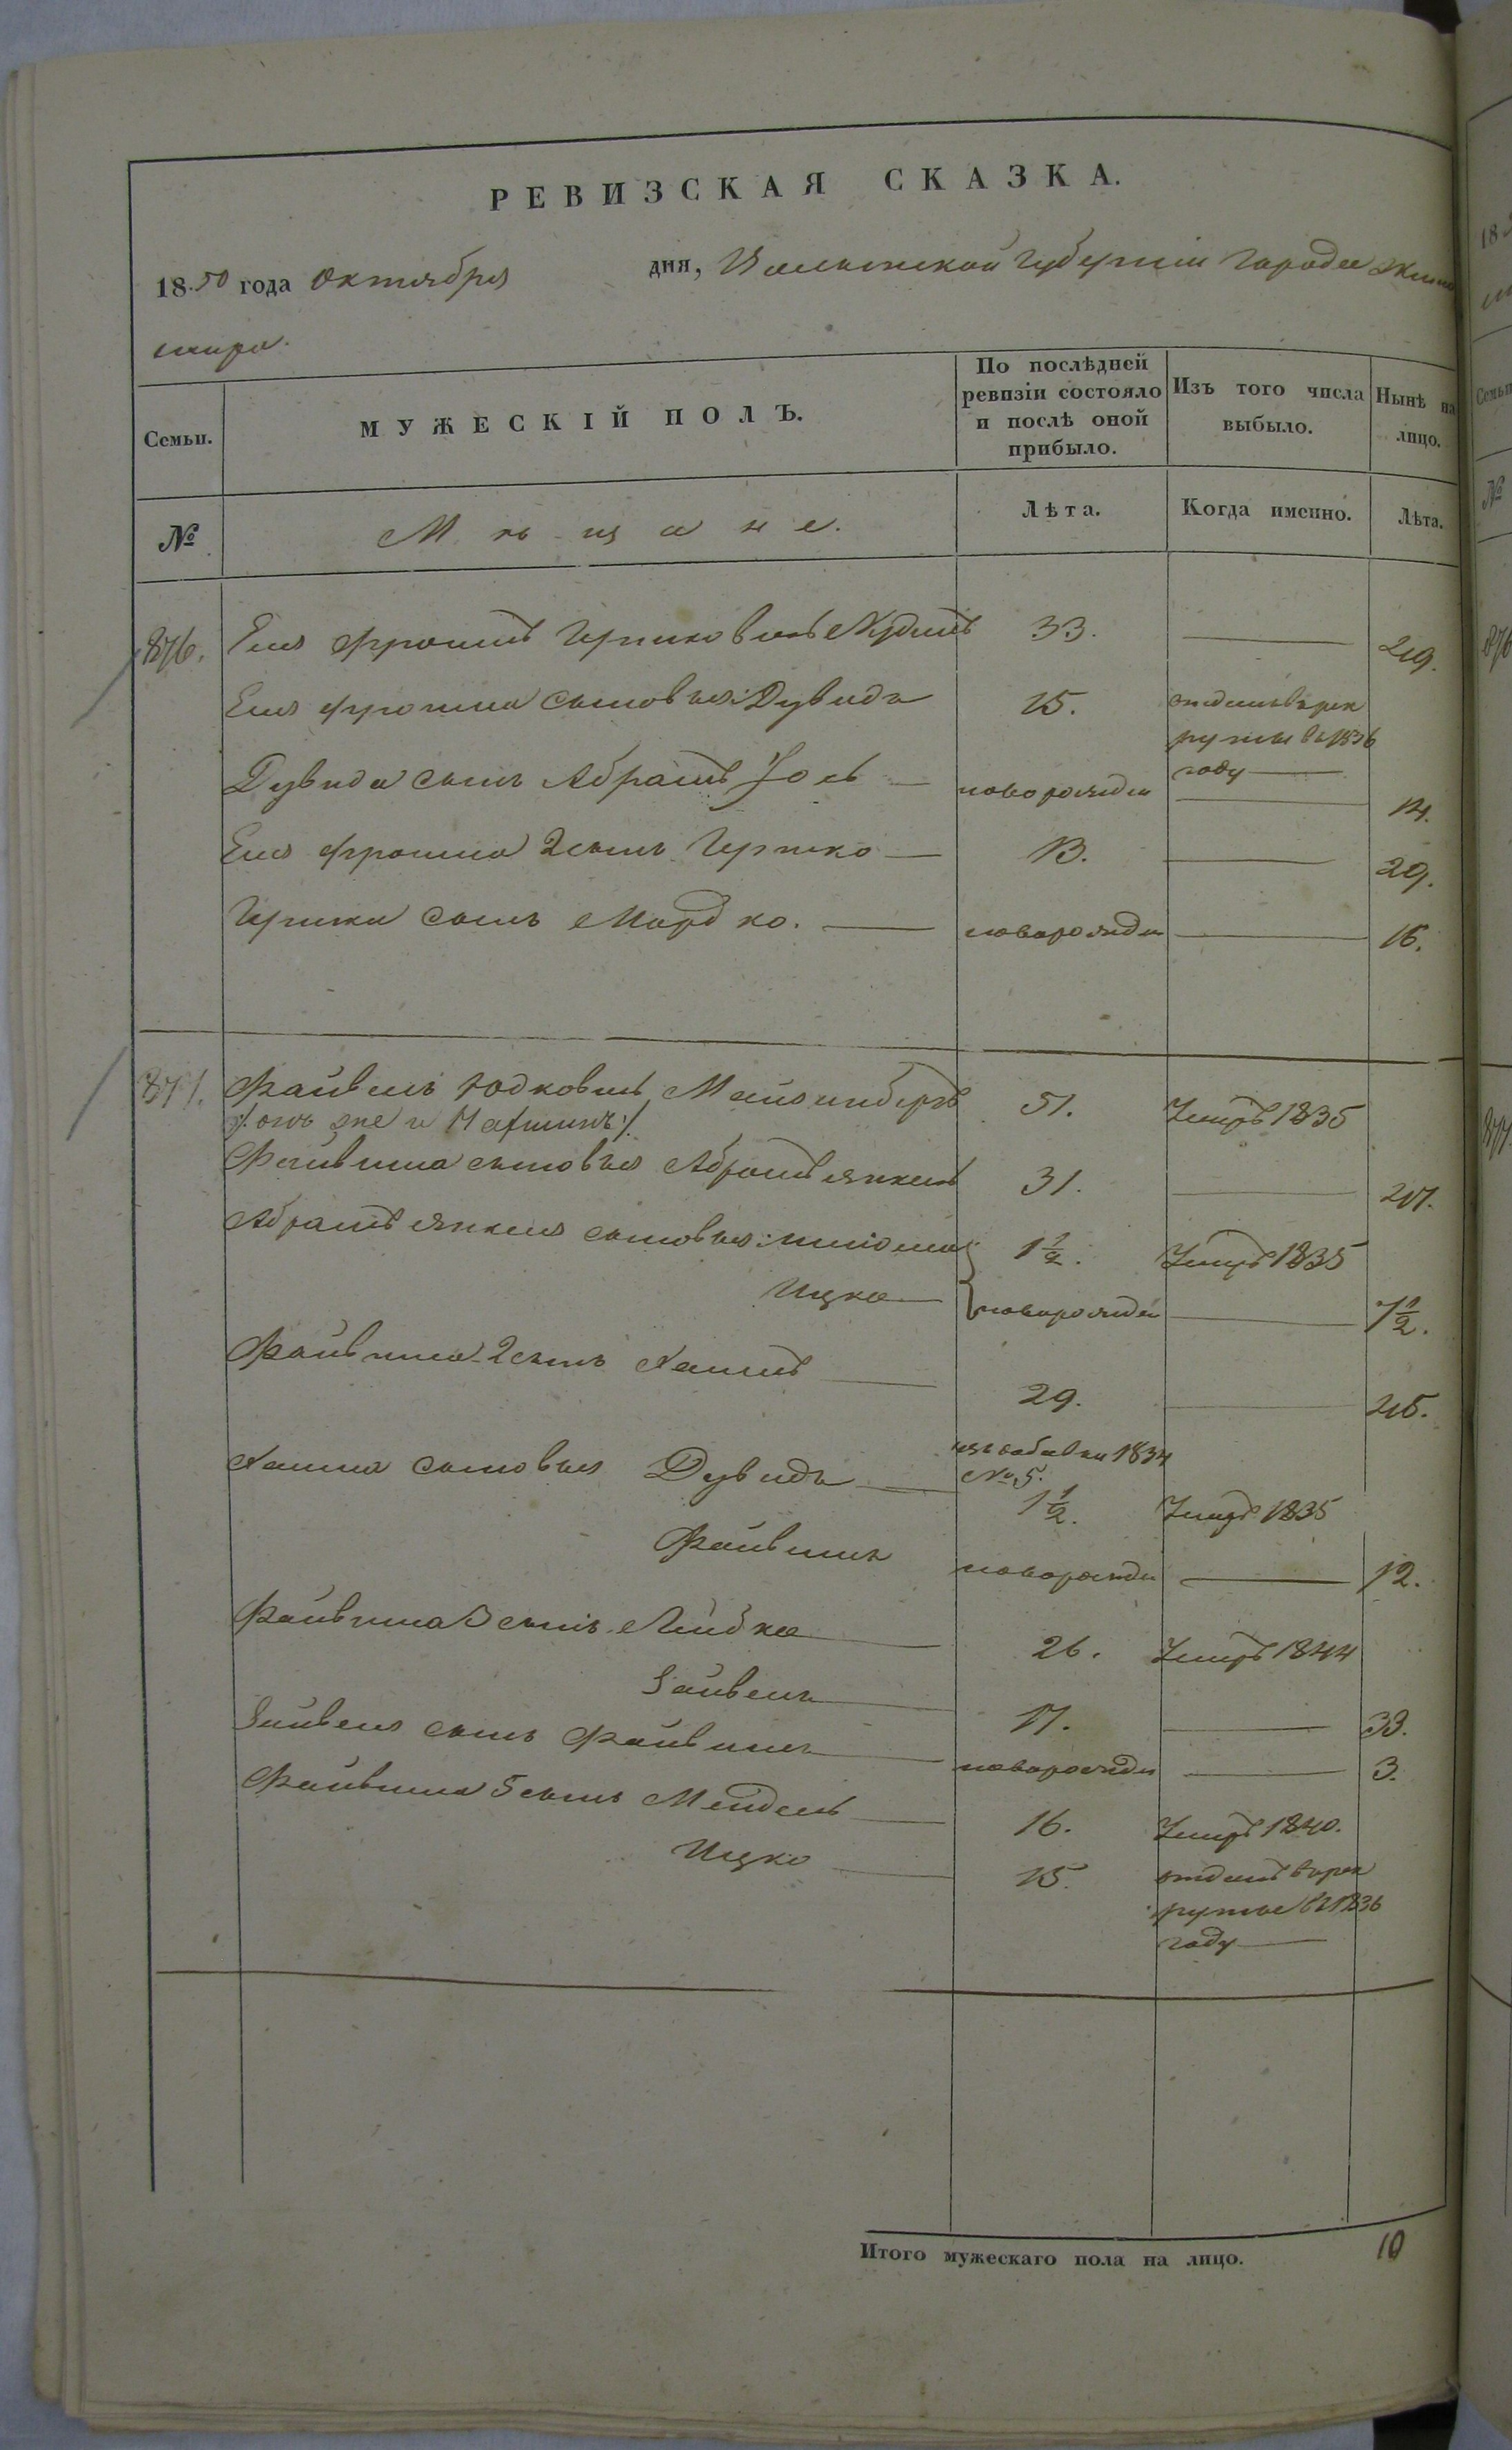 РЕВИЗСКАЯ СКАЗКА.
1850 года Октября дня, Волынской Губерніи Города Жито
мира.
Семьи.
МУЖЕСКІЙ ПОЛЪ.
По послѣдней ревизіи состояло и послѣ оной прибыло.
Изъ того числа выбыло.
Нынѣ на лицо.
№
Мѣщане.
Лѣта.
Когда именно.
Лѣта.
876. Ель Фроимъ Гершковичъ 33. 49.
Еля Фроима сыновья: Дувидъ 15. отданъ въ рек
руты въ 1836
году
Дувида сынъ Абрамъ Іось новорожден 14.
Еля Фроима 2 сынъ Гершко 13. 29.
Гершка сынъ Мордко. новорожден 16.
877. Файвель Юдковичъ 51. Умеръ 1835
/: онъ же и :/
Файвиша сыновья Абрамъ Янкель 31. 47.
Абрамъ Янкеля сыновья: 1 1/2. Умеръ 1835
Ицко новорожден 7 1/2.
Файвиша 2 сынъ Хаимъ 29. 45.
Хаима сыновья Дувидъ 1834
№ 5.
1 1/2. Умеръ 1835
Файвишъ новорожден 12.
Файвиша 3 сынъ Лейбка 26. Умеръ 1844
Зайвель 17. 33.
Зайвеля сынъ Файвишъ новорожден 3.
Файвиша 5 сынъ Мендель 16. Умеръ 1840.
Ицко 15. отданъ в рек
руты въ 1836
году
Итого мужескаго пола на лицо. 10